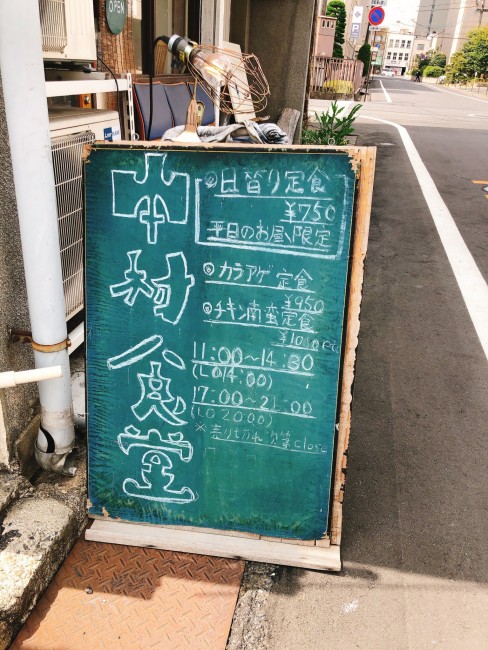 OPEN
中村食堂
◎日替り定食
¥750
平日のお昼限定
◎カラアゲ定食
¥950
◎チキン南蛮定食
¥1000
11:00〜14:30
(LO14:00)
17:00〜21:00
(LO20:00)
※売り切れ次第close